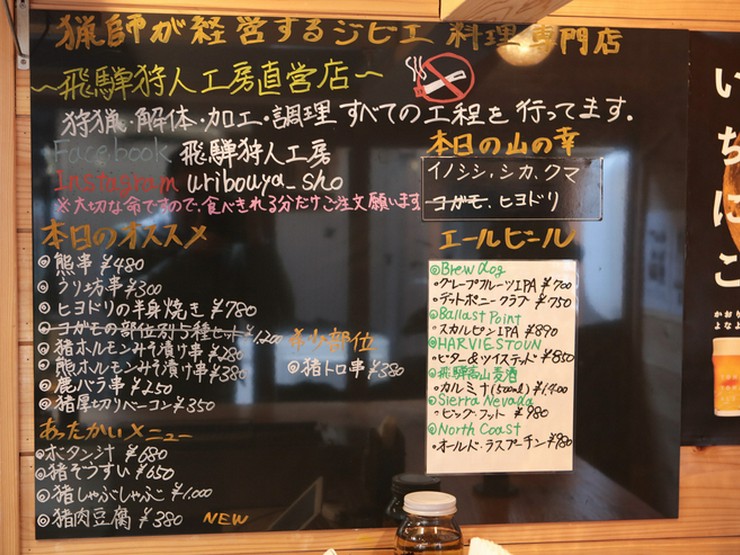 猟師が経営するジビエ料理専門店
〜飛騨狩人工房直営店〜
狩猟・解体・加工・調理すべての工程を行ってます.
Facebook 飛騨狩人工房
Instagram uribouya_sho
※大切な命ですので、食べきれる分だけご注文願います
本日の山の幸
イノシシ、シカ、クマ
ヨガモ、ヒヨドリ
本日のオススメ
◎熊串 ¥480
◎うり坊串 ¥300
◎ヒヨドリの半身焼き ¥780
◎ヨガモの部位別5種セット ¥1,200
◎猪ホルモンみそ漬け串 ¥280
◎熊ホルモンみそ漬け串 ¥380
◎鹿バラ串 ¥250
◎猪厚切りベーコン ¥350
希少部位
◎猪トロ串 ¥380
あったかいメニュー
◎ボタン汁 ¥680
◎猪ぞうすい ¥650
◎猪しゃぶしゃぶ ¥1,000
◎猪肉豆腐 ¥380 NEW
エールビール
◎Brew dog
・グレープフルーツIPA ¥700
・デットポニークラブ ¥750
◎Ballast Point
・スカルピンIPA ¥890
◎HARVIESTOUN
・ビター&ツイステッド ¥850
◎飛騨高山麦酒
・カルミナ(500ml) ¥1,400
◎Sierra Nevada
・ビッグ・フット ¥980
◎North Coast
・オールド・ラスプーチン ¥980
いちにこ
かおり
よなよ